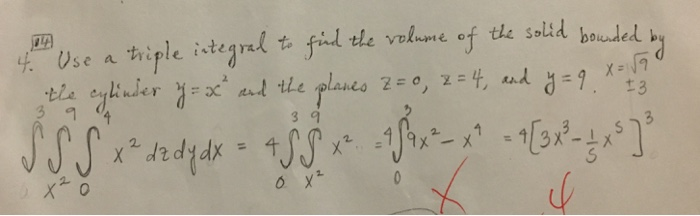 14
4. Use a triple integral to find the volume of the solid bounded by
the cylinder y = x² and the planes z = 0, z = 4, and y = 9. x = √9
±3
3 9 4
∫∫∫ x² dz dy dx = 4 ∫∫ x² = 4 ∫ 9x² - x⁴ = 4[3x³ - 1/5 x⁵]³
x² 0 0 x² 0
X 4